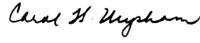 Carol H. Wysham